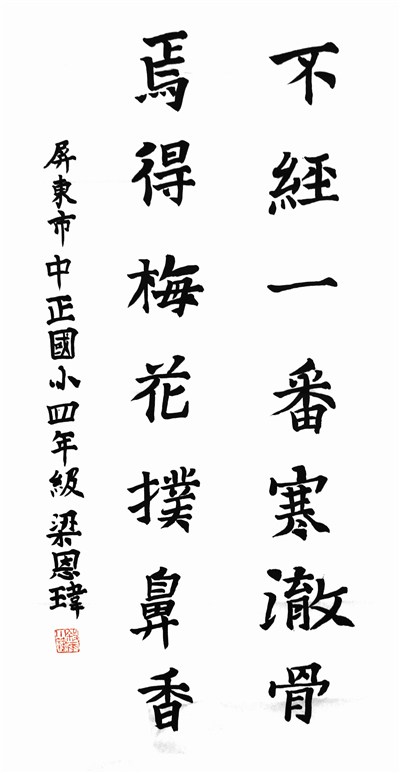 不經一番寒澈骨
焉得梅花撲鼻香
屏東市中正國小四年級 梁恩瑋